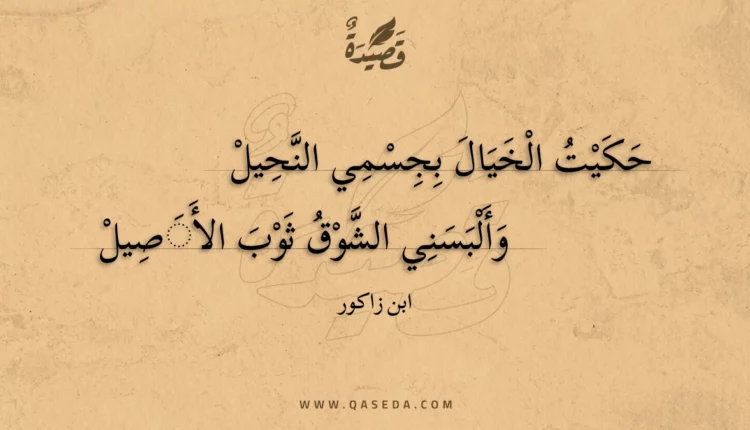 قَصِيْدَةٌ
حَكَيْتُ الْخَيَالَ بِجِسْمِي النَّحِيلْ
وَأَلْبَسَنِي الشَّوْقُ ثَوْبَ الأَ َصِيلْ
ابن زاكور
WWW.QASEDA.COM